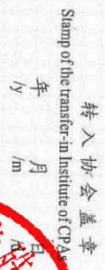 转入协会盖章
Stamp of the transfer-in Institute of CPAs
年 月 日
/y /m